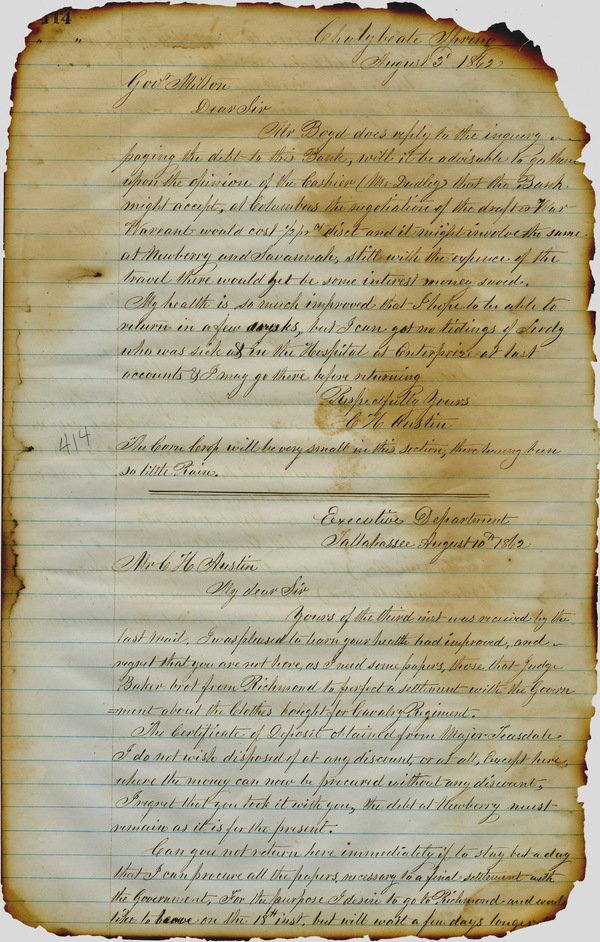 414
" "
Chalybeate Spring
August 3d 1862
Govr Milton
Dear Sir
Mr Boyd does reply to the inquiry
paying the debt to this Bank, will it be advisable to go
upon the opinion of the Cashier (Mr Dudley) that the Bank
might accept, at Columbus the negotiation of the draft or War
Warrant would cost ½ pr ct disct and it might involve the same
at Newberry and Savannah, still with the expence of the
travel there would yet be some interest money saved.
My health is so much improved that I hope to be able to
return in a few weeks, but I can get no tidings of
who was sick & in the Hospital at Enterprize at last
accounts & I may go there before returning
Respectfully Yours
C H Austin
414
The Corn Crop will be very small in this section, there having been
so little Rain.
Executive Department
Tallahassee August 10th 1862
Mr C H Austin
My dear Sir
Yours of the third inst was received by the
last mail. I was pleased to learn your health had improved, and
regret that you are not here, as I need some papers, those that Judge
Baker brot from Richmond to perfect a settlement with the Govern
=ment about the Clothes bought for Cavalry Regiment.
The Certificate of Deposit obtained from Major Teasdale
I do not wish disposed of at any discount or at all, Except here,
where the money can now be procured without any discount,
I regret that you took it with you, the debt at Newberry must
remain as it is for the present.
Can you not return here immediately if to stay but a day
that I can procure all the papers necessary to a final settlement with
the Government, For the purpose I desire to go to Richmond and would
like to leave on the 15th inst, but will wait a few days longer